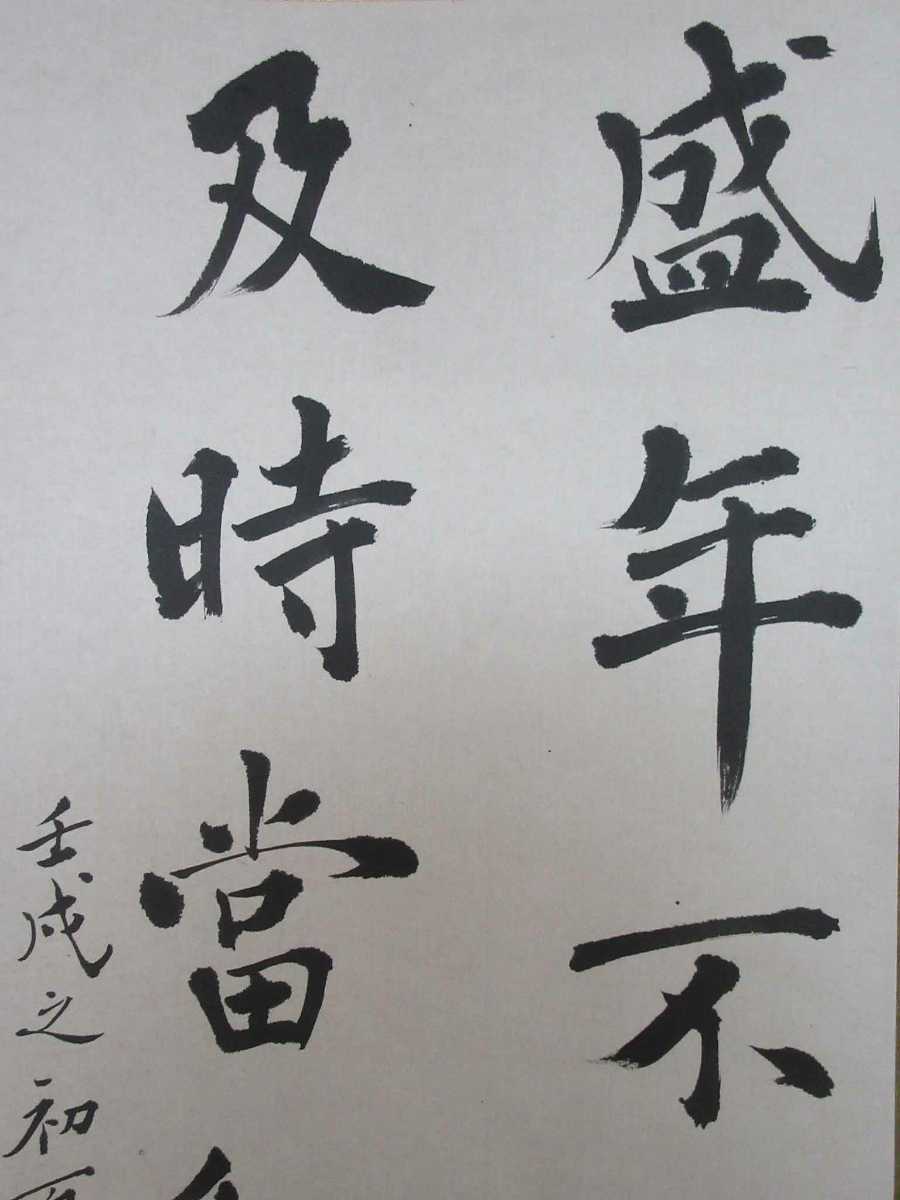 盛年不
及時當
壬戌之初